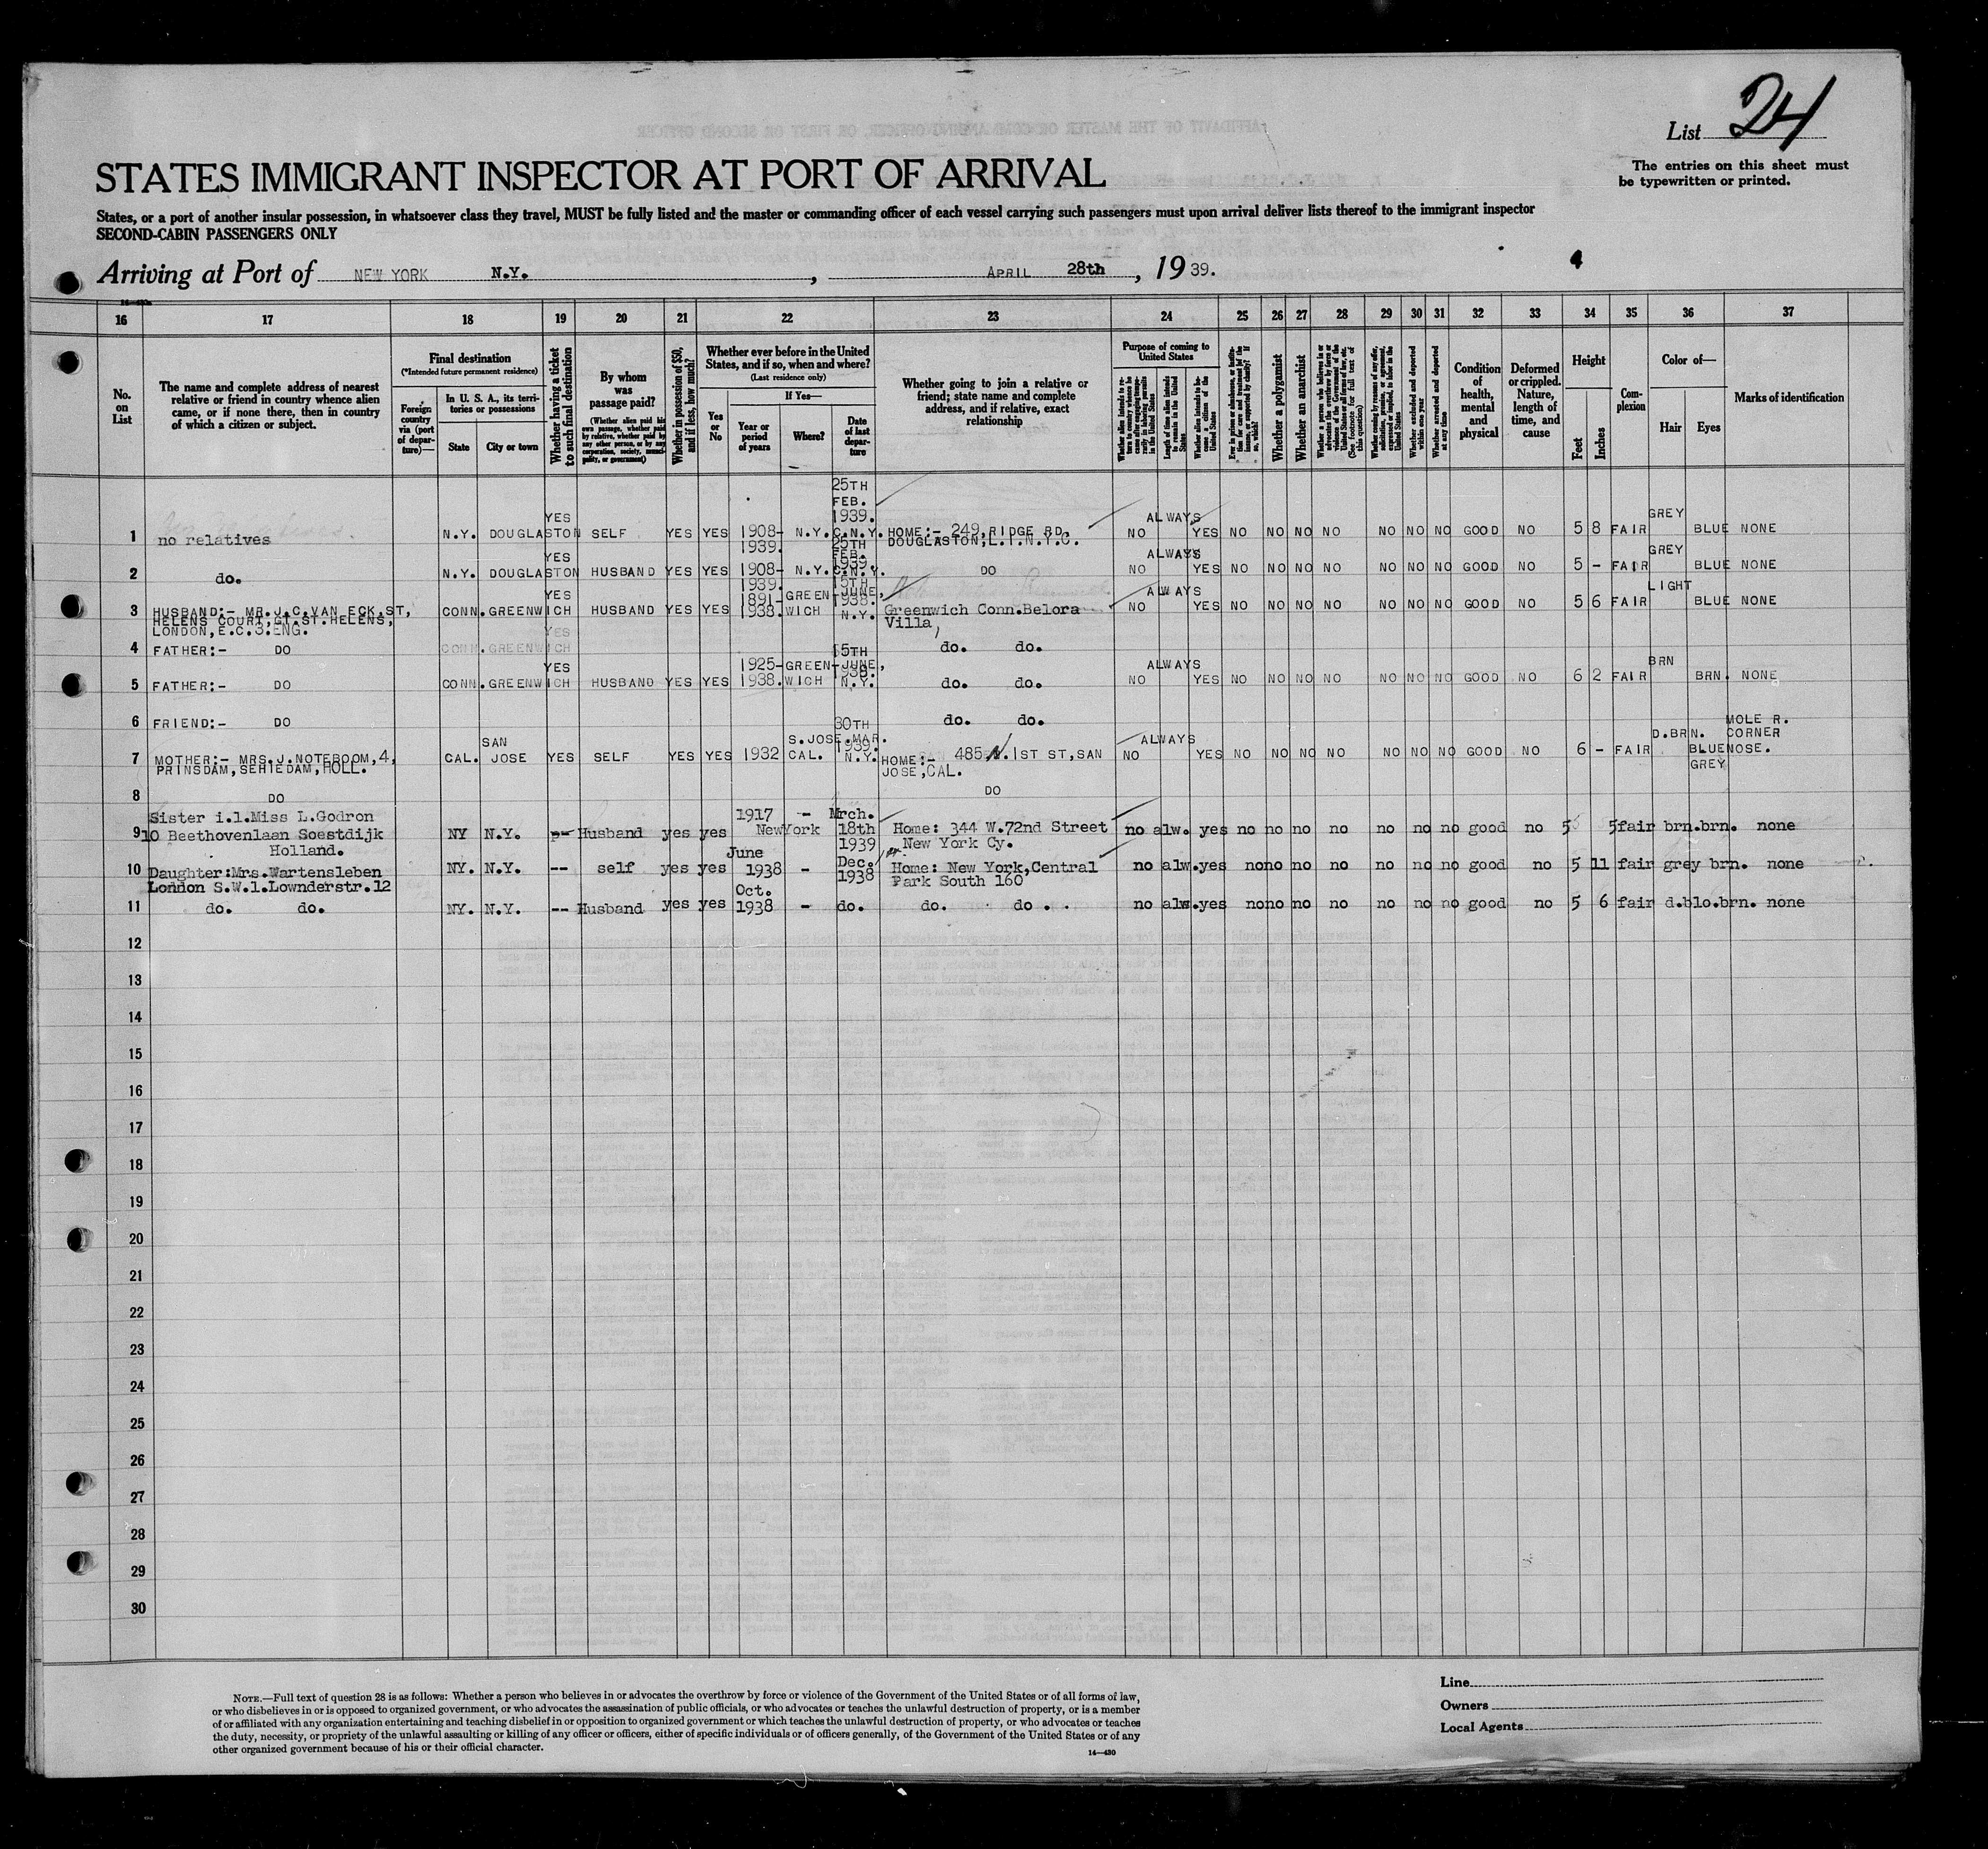 List 24
The entries on this sheet must
be typewritten or printed.
STATES IMMIGRANT INSPECTOR AT PORT OF ARRIVAL
States, or a port of another insular possession, in whatsoever class they travel, MUST be fully listed and the master or commanding officer of each vessel carrying such passengers must upon arrival deliver lists thereof to the immigrant inspector
SECOND-CABIN PASSENGERS ONLY
Arriving at Port of NEW YORK N.Y. , APRIL 28th , 19 39.
16 17 18 19 20 21 22 23 24 25 26 27 28 29 30 31 32 33 34 35 36 37
No. on List
The name and complete address of nearest relative or friend in country whence alien came, or if none there, then in country of which a citizen or subject.
Final destination
(*Intended future permanent residence)
Foreign country via (port of departure)—
In U. S. A., its territories or possessions
State
City or town
Whether having a ticket to such final destination
By whom was passage paid?
(Whether alien paid his own passage, whether paid by relative, whether paid by any other person, or by any corporation, society, municipality, or government)
Whether in possession of $50, and if less, how much?
Whether ever before in the United States, and if so, when and where?
(Last residence only)
Yes or No
If Yes—
Year or period of years
Where?
Date of last departure
Whether going to join a relative or friend; state name and complete address, and if relative, exact relationship
Purpose of coming to United States
Length of time alien intends to remain in the United States
Whether alien intends to become a citizen of the United States
Whether a polygamist
Whether an anarchist
Whether excluded and deported within one year
Whether arrested and deported at any time
Condition of health, mental and physical
Deformed or crippled. Nature, length of time, and cause
Height
Feet
Inches
Complexion
Color of—
Hair
Eyes
Marks of identification
1 no relatives N.Y. DOUGLASTON YES SELF YES YES 1908-1939. N.Y. 25TH FEB. 1939. C.N.Y. HOME:- 249,RIDGE RD. DOUGLASTON,L.I.N.Y.C. NO ALWAYS YES NO NO NO NO NO NO NO GOOD NO 5 8 FAIR GREY BLUE NONE
2 do. N.Y. DOUGLASTON YES HUSBAND YES YES 1908-1939. N.Y. 25TH FEB. 1939. C.N.Y. DO NO ALWAYS YES NO NO NO NO NO NO NO GOOD NO 5 - FAIR GREY BLUE NONE
3 HUSBAND:- MR.J.C.VAN ECK,ST, HELENS COURT,GT.ST.HELENS, LONDON,E.C.3.ENG. CONN. GREENWICH YES HUSBAND YES YES 1891-1938. GREENWICH 15TH JUNE, 1938. N.Y. Greenwich Conn.Belora Villa, NO ALWAYS YES NO NO NO NO NO NO NO GOOD NO 5 6 FAIR LIGHT BLUE NONE
4 FATHER:- DO CONN. GREENWICH YES do. do.
5 FATHER:- DO CONN. GREENWICH YES HUSBAND YES YES 1925-1938. GREENWICH 15TH JUNE, 1938. N.Y. do. do. NO ALWAYS YES NO NO NO NO NO NO NO GOOD NO 6 2 FAIR BRN BRN. NONE
6 FRIEND:- DO do. do.
7 MOTHER:- MRS.J.NOTEBOOM,4, PRINSDAM,SEHIEDAM,HOLL. CAL. SAN JOSE YES SELF YES YES 1932 S.JOSE CAL. 30TH MAR. 1939. N.Y. HOME:- 485 N. 1ST ST,SAN JOSE,CAL. NO ALWAYS YES NO NO NO NO NO NO NO GOOD NO 6 - FAIR D.BRN. BLUE GREY MOLE R. CORNER NOSE.
8 DO DO
9 Sister i.l.Miss L.Godron 10 Beethovenlaan Soestdijk Holland. NY N.Y. Husband yes yes 1917 - NewYork Mrch. 18th 1939 Home: 344 W.72nd Street New York Cy. no alw. yes no no no no no no no good no 5 5 fair brn. brn. none
10 Daughter:Mrs.Wartensleben London S.W.1.Lownderstr.12 NY. N.Y. -- self yes yes June 1938 - Dec. 1938 Home: New York,Central Park South 160 no alw. yes no no no no no no no good no 5 11 fair grey brn. none
11 do. do. NY. N.Y. -- Husband yes yes Oct. 1938 - do. do. do. no alw. yes no no no no no no no good no 5 6 fair d.blo. brn. none
12
13
14
15
16
17
18
19
20
21
22
23
24
25
26
27
28
29
30
NOTE.—Full text of question 28 is as follows: Whether a person who believes in or advocates the overthrow by force or violence of the Government of the United States or of all forms of law,
or who disbelieves in or is opposed to organized government, or who advocates the assassination of public officials, or who advocates or teaches the unlawful destruction of property, or is a member
of or affiliated with any organization entertaining and teaching disbelief in or opposition to organized government or which teaches the unlawful destruction of property, or who advocates or teaches
the duty, necessity, or propriety of the unlawful assaulting or killing of any officer or officers, either of specific individuals or of officers generally, of the Government of the United States or of any
other organized government because of his or their official character.
14—430
Line
Owners
Local Agents